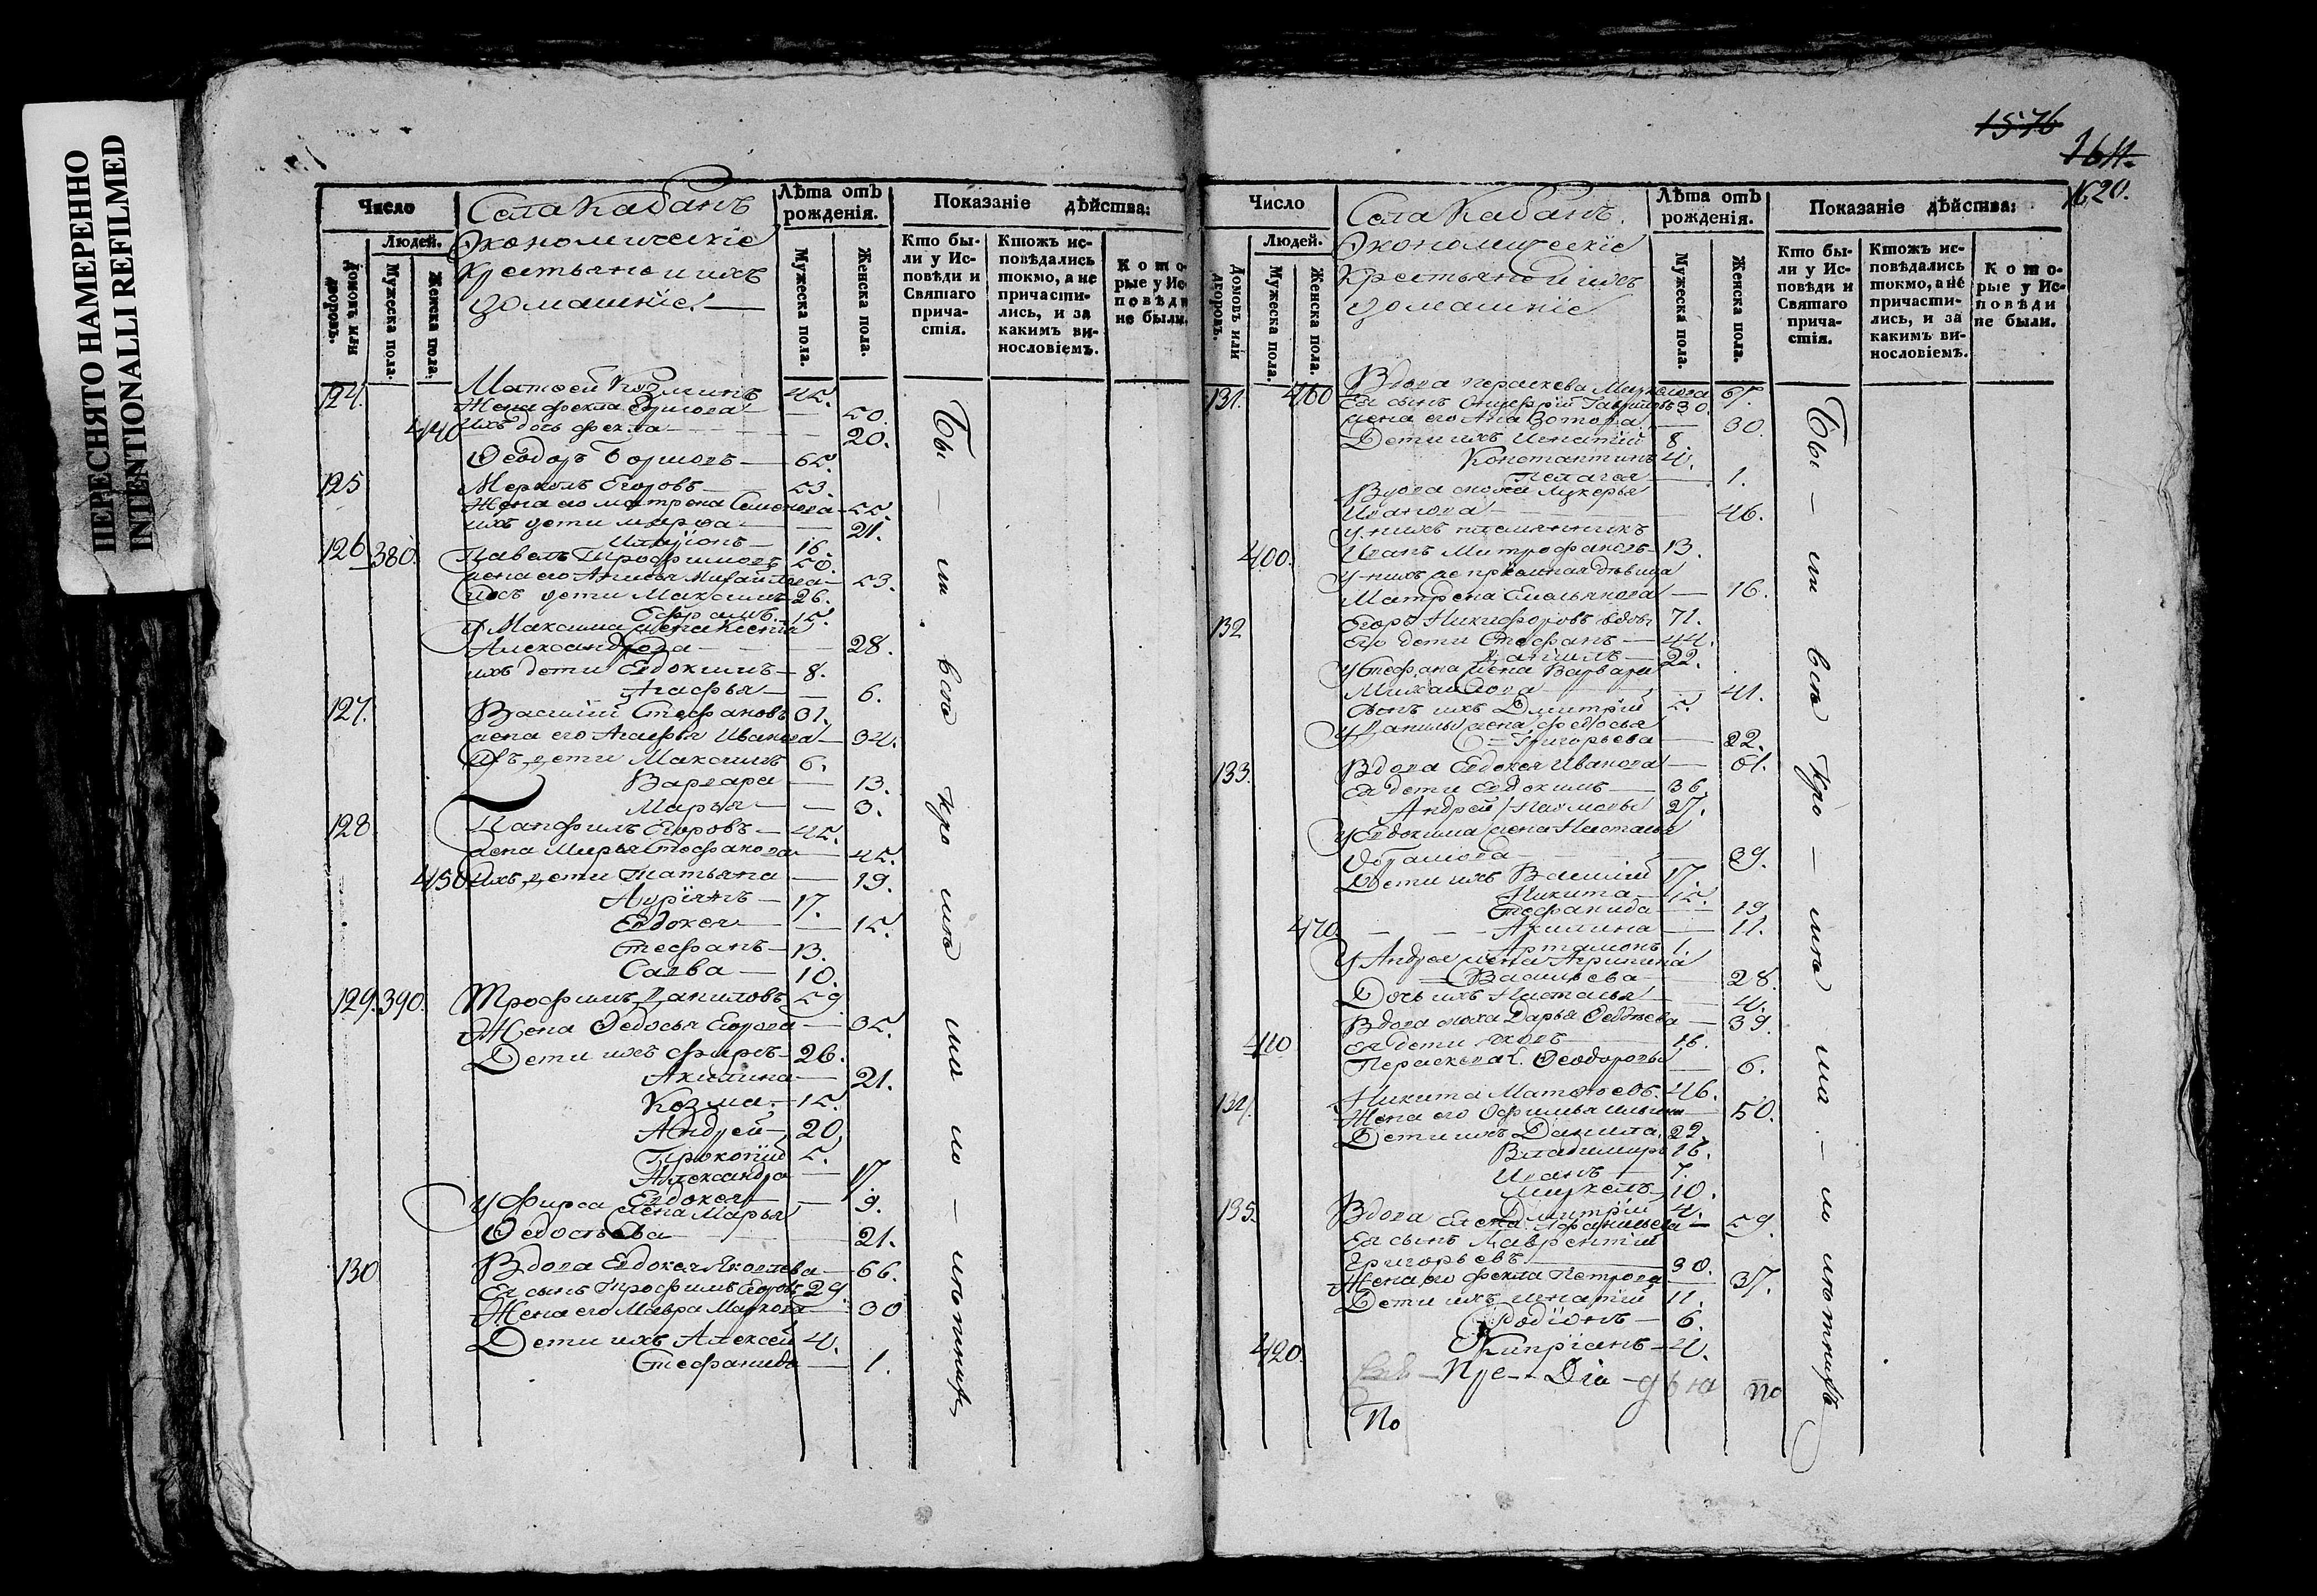 ПЕРЕСНЯТО НАМЕРЕННО
INTENTIONALLI REFILMED
Число
Села Кабанъ
Экономическіе
крестьяне и ихъ
домашніе
Лѣта отъ рожденія.
Показаніе дѣйства:
Людей.
Домовъ или дворовъ.
Мужеска пола.
Женска пола.
Мужеска пола.
Женска пола.
Кто бы-
ли у Ис-
повѣди и
Святаго
прича-
стія.
Ктожъ ис-
повѣдались
токмо, а не
причасти-
лись, и за
какимъ ви-
нословіемъ.
Кото-
рые у Ис-
повѣди
не были.
124. Матѳей Козминъ 45.
Жена Фекла 50.
440 Ихъ дочь Фекла 20.
Ѳеодоръ 65.
125 Меркулъ Егоровъ 53.
Жена его Матрена Семенова 55
ихъ дети Марѳа 21.
Иларіонъ 16.
126 380. Павелъ Трофимовъ 50.
жена его Михайлова 53.
ихъ дети Максимъ 26.
Ефрамъ 15.
У Максима жена Ксенія
Александрова 28.
ихъ дети Евдокимъ 8.
Агафья 6.
127. Василій Стефановъ 31.
жена его Агафья Иванова 34.
Ихъ дети Максимъ 6.
Варвара 13.
Марья 3.
128 Панфилъ Егоровъ 45.
жена Марья Стефанова 45.
450 ихъ дети Татьяна 19.
Адріянъ 17.
Евдокея 15.
Стефанъ 13.
Савва 10.
129. 390. Трофимъ Даниловъ 59
Жена Ѳедосья Егорова 35.
Дети ихъ Фирсъ 26.
Акилина 21.
Козма 15.
Андрей 20
Прокопій 5.
Александра 17.
Евдокея 9.
У Фирса жена Марья
Ѳедосѣева 21.
130 Вдова Евдокея Яковлева 66.
Ея сынъ Трофимъ Егоровъ 29.
Жена его Мавра Маркова 30
Дети ихъ Алексей 4.
Стефанида 1.
Бы – ли всѣ кро мѣ ма ло – лѣтнихъ
1576
1611.
1620.
Число
Села Кабанъ.
Экономическіе
крестьяне и ихъ
домашніе
Лѣта отъ рожденія.
Показаніе дѣйства:
Людей.
Домовъ или дворовъ.
Мужеска пола.
Женска пола.
Мужеска пола.
Женска пола.
Кто бы-
ли у Ис-
повѣди и
Святаго
прича-
стія.
Ктожъ ис-
повѣдались
токмо, а не
причасти-
лись, и за
какимъ ви-
нословіемъ.
Кото-
рые у Ис-
повѣди
не были.
131. 460 Вдова Параскева 67.
Ея сынъ Онуфрій Гавриловъ 30.
жена его Анна 30.
Дети ихъ Игнатій 8.
Константинъ 4.
Пелагея 1.
Вдова сноха Лукерья
Иванова 46.
У нихъ племянникъ
400. Иванъ Митрофановъ 13.
У нихъ же пріемная дѣвица
Матрена Емельянова 16.
132 Егоръ Никифоровъ вдовъ 71.
Его дети Стефанъ 44.
Данилъ 22.
У Стефана жена Варвара
Михайлова 41.
Сынъ ихъ Дмитрій 5.
У Данилы жена Федосья
Григорьева 22.
133. Вдова Евдокея Иванова 61.
Ея дети Евдокимъ 36.
Андрей Наумовы 27.
У Евдокима жена Наталья
39.
Дети ихъ Василій 17.
Никита 15.
Стефанида 19.
470. Акилина 11.
Артамонъ 1.
У Андрея жена Агрипина
Васильева 28.
Дочь ихъ Наталья 4.
Вдова сноха Дарья 39.
410 Ея дети 16.
Параскева Ѳеодоровы 6.
134. Никита Матвѣевъ 46.
Жена его Офимья 50.
Дети ихъ Данила 22
Владимиръ 16.
Иванъ 7.
10.
Дмитрій 4.
135. Вдова Елена 59.
Ея сынъ Лаврентій
Григорьевъ 30.
Жена его Фекла Петрова 37.
Дети ихъ Игнатій 11.
Родіонъ 6.
420. Кипріанъ 4.
Пре – Діа – по
По
Бы – ли всѣ кро – мѣ ма – ло лѣтнихъ